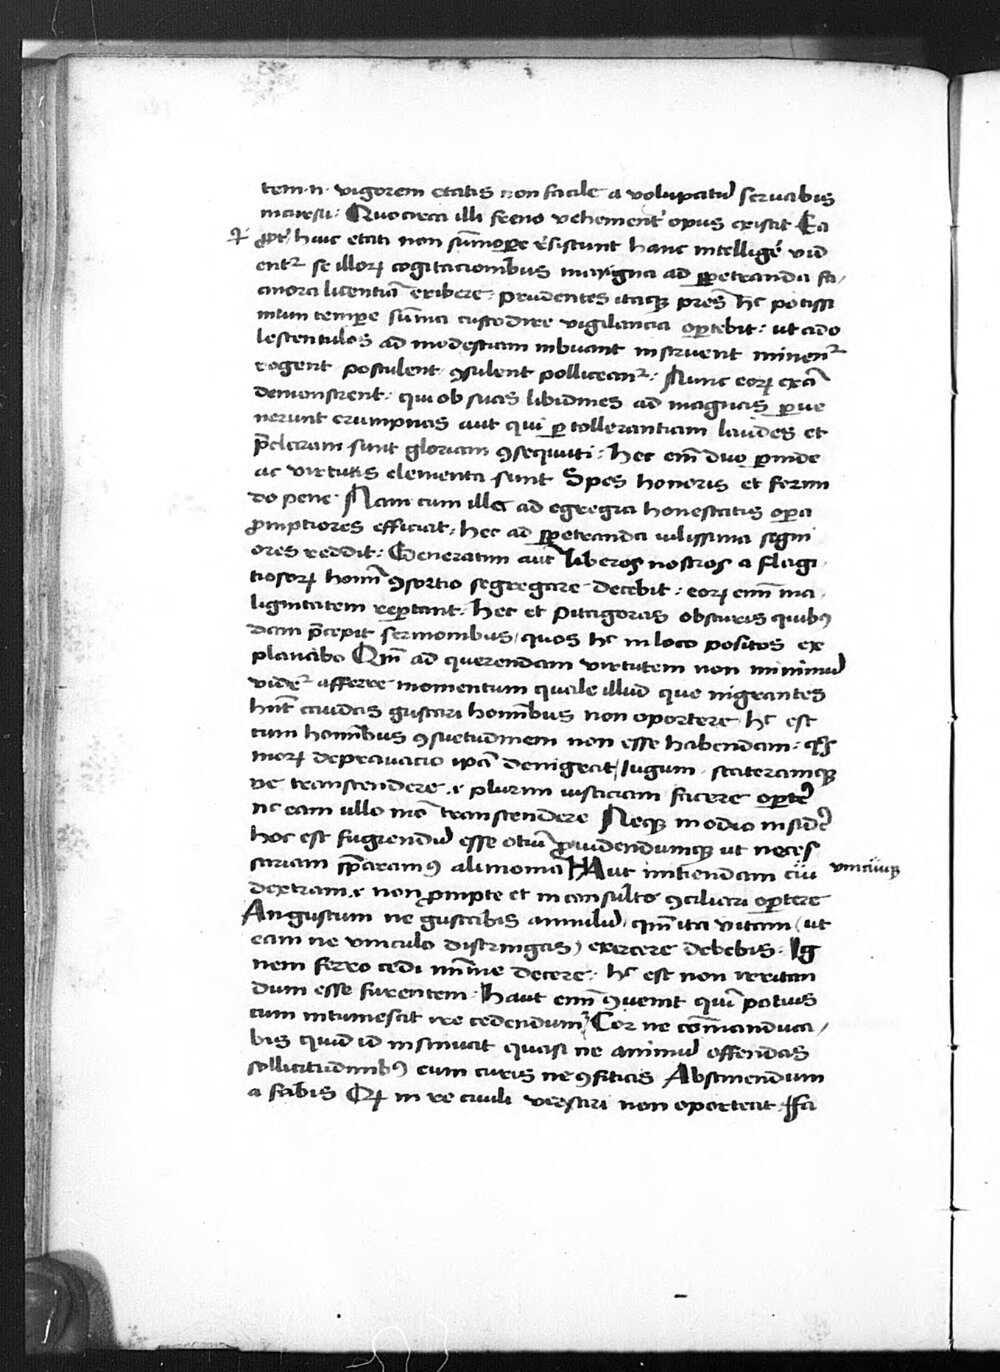 tem·n· vigorem etatis non facile a voluptatū seruabis
incursu: Quocirca illi freno vehementer opus existit Ea
ꝓpt' huic etati non sūmoꝑe resistunt hanc intelligēt vid
entr̄ se illoꝝ cogitacionibus malignā ad ꝑpetranda fa,
cinora licentiā exibere: prudentes itaqꝫ pr̄es hͦ potissi
mum tempore sūma custodire vigilancia oꝑtebit: ut ado
lescentulos ad modestiam inbuant instruent minent̄
rogent postulent ꝯsulent polliceant̄: Nunc eoꝝ exēa
demonstrent: qui ob suas libidines ad magnas ꝑue
nerunt erumpnas aut qui ꝑ tollerantiam laudes et
p̄claram sunt gloriam ꝯsequuti: hec em̄ duo ꝑinde
ac virtutis elementa sunt Spes honoris et formi
do pene Nam cum illa ad egregia honestatis opera
ꝓmptiores efficiat, hec ad ꝑpetranda vilissima segni
ores reddit: Generatim aut liberos nostros a flagi
tiosoꝝ homī ꝯsortio segregare decebit: eoꝝ enim ma,
lignitatem reꝑtant. Hec et Pitagoras obscuris quibꝰ
dam p̄cepit sermonibus, quos hͦ in loco positos ex
planabo Qm̄ ad querendam virtutem non minimū
vident̄ afferre momentum quale illud que nigrantes
hn̄t caudas gustari hominibus non oportere hͦ est
cum hominibus ꝯsuetudinem non esse habendam: qͦs
moꝝ deprauacio ipā denigrat, Iugum stateramqꝫ
ne transcendere .i. plurimi iusticiam facere oꝑtet
nc eam ullo mo transcendere Neqꝫ in odio insideͤ
hoc est fugiendū esse otiū ꝓuidendumqꝫ ut neces
sariam sp̄aramꝰ alimoniā Haut initiendam cui vnicuiqꝫ
dextram .i. non ꝓmpte et inconsulto ꝯciliari oꝑtere
Angustum ne gustabis annulū, qm̄ ita vitam (ut
eam ne vinculo distringas) exercere debebis: Ig
nem ferro cedi minime decere: hͦ est non irritan
dum esse furentem. Haut enim ꝯuenit qui potius
cum intumescit ire cedendum, Cor ne comanduca,
bis quid id insinuat quasi ne animū offendas
sollicitudinibꝰ eum curis ne ꝯficias Abstinendum
a fabis Qꝫ in re ciuili versari non oporteat, Fa